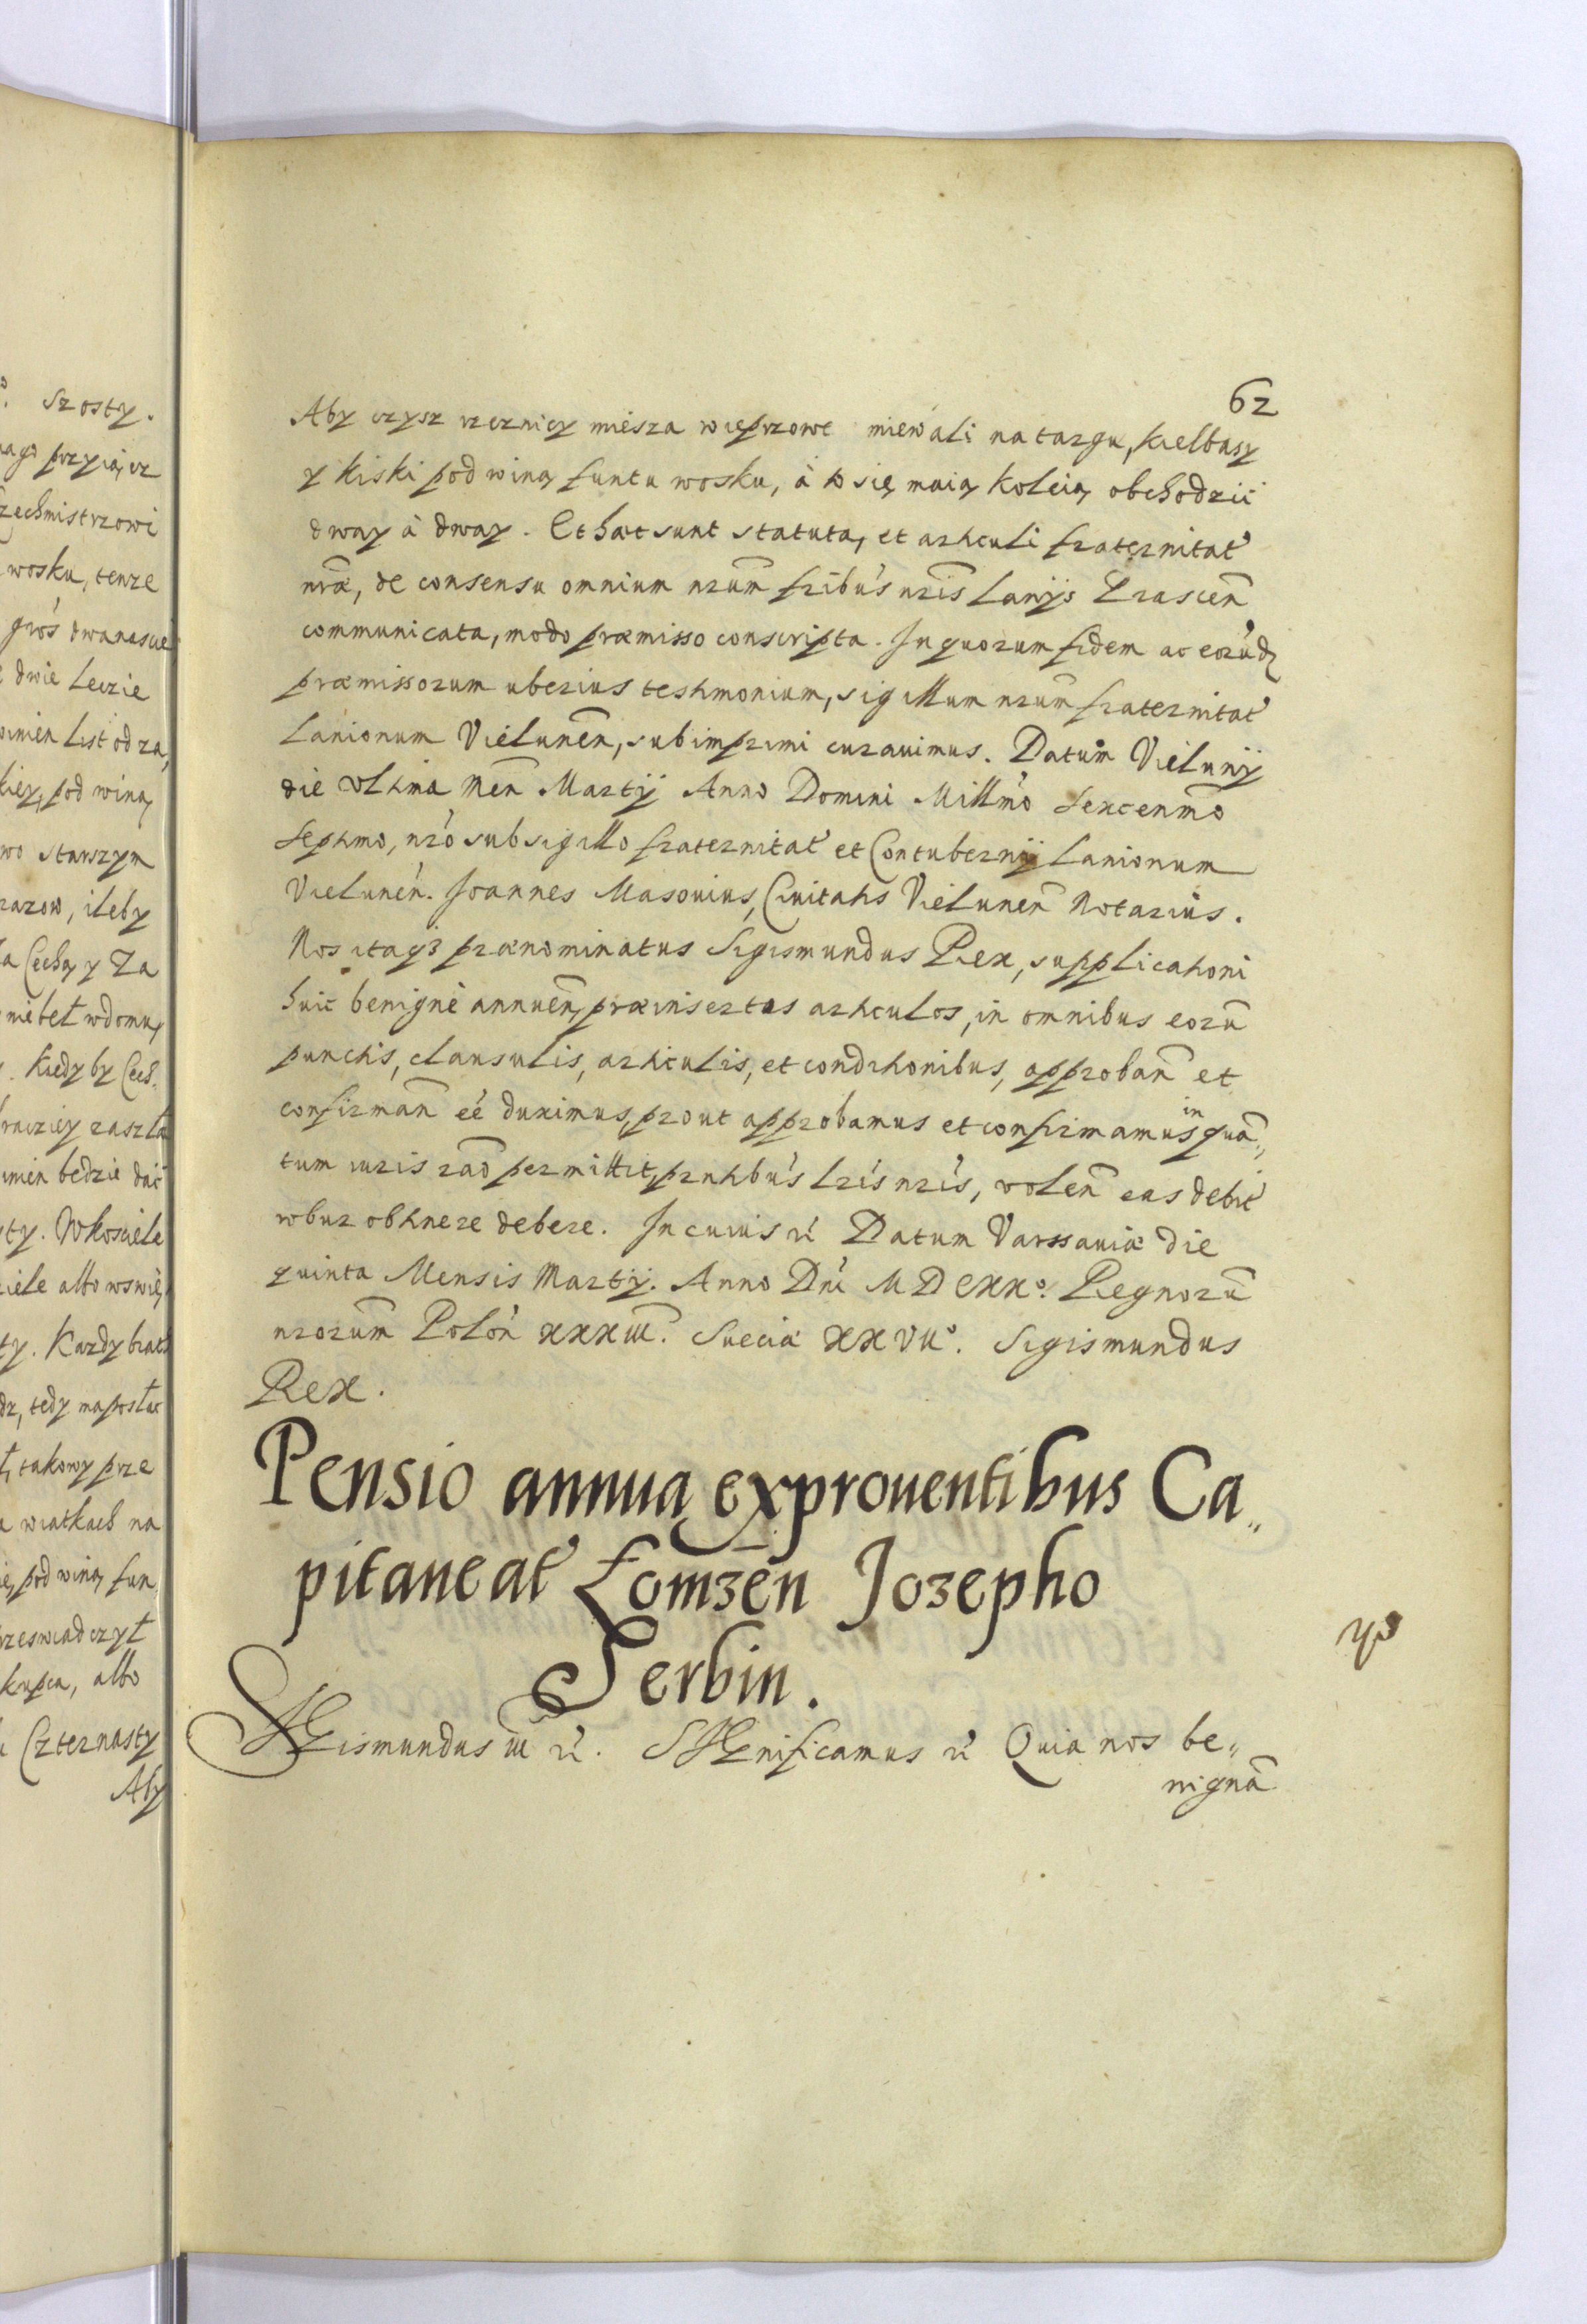 szosty.
nago przyiącz
zechmistrzowi
wosku, tenze
gros dwanascie
dwie Leczie
winien List od za,
kiey, pod winą,
wo starszym
razow, ileby
a Cechą y Za
niebeł wdomu,
Kiedyby Cech.
braciey zaszła
umien bedzie dać
ty. W kosciele
ciele albo wswię,
ty. Kazdy brat
dz, tedy ma posłac
takowy prze
wiatkach na
pod winą fun,
rzeswiadczył
kupca, albo
Czternasty
Aby
62
Aby czysz rzeznicy miesza wieprzowe miewali na targu, kiełbasy
y kiski pod winą funtu wosku, à to się maią koleią obchodzić
dway à dway. Et haec sunt statuta, et articuli fraternitat
nrae, de consensu omnium nrum fribus nris Lanijs Łascen
communicata, modo praemisso conscripta. In quorum fidem ac eorūdq
praemissorum uberius testimonium, sigillum nrum fraternitat
Lanionum Vielunen, subimprimi curauimus. Datum Vielunij
die Vltima Men Martij Anno Domini Millmo sexcenmo
septimo, nro sub sigillo fraternitat et Contubernij Lanionum
Vielunen. Joannes Masouius, Ciuitatis Vielunen Notarius.
Nos itaq3 praenominatus Sigismundus Rex, supplicationi
huic benignè annuen, praeinsertos articulos, in omnibus eorū
punctis, clausulis, articulis, et conditionibus, approban et
confirman eé duximus, prout approbamus et confirmamus in quā,,
tum iuris rao permittit, pntibus lris nris, volen eas debit
robur obtinere debere. In cuius rei Datum Varssauiae Die
quinta Mensis Martij. Anno Dni MDCXXo. Regnorū
nrorum Polon XXXIII. Sueciae XXVIIo. Sigismundus
Rex.
Pensio annua ex prouentibus Ca,,
pitaneat Łomzen Jozepho
Serbin.
SIGismundus III rć. SIGnificamus rć Quia nos be,,
nignā